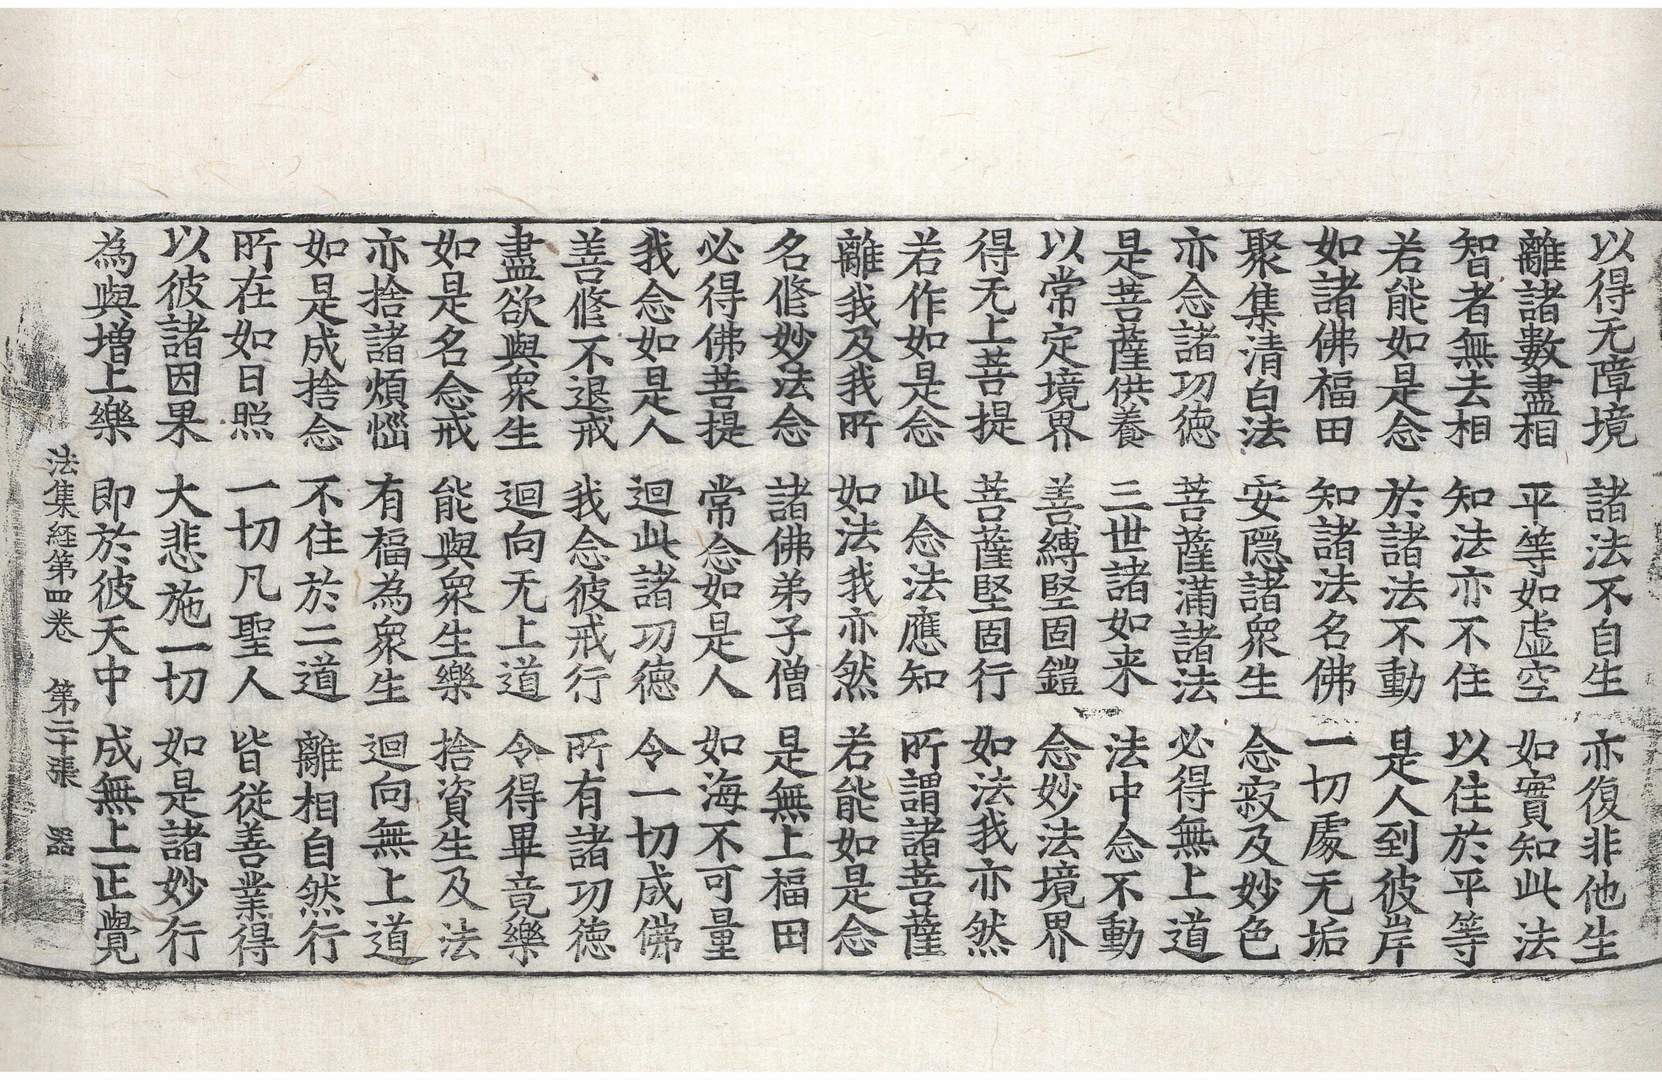 以得无障境 諸法不自生 亦復非他生
離諸數盡相 平等如虛空 如實知此法
智者無去相 知法亦不住 以住於平等
若能如是念 於諸法不動 是人到彼岸
如諸佛福田 知諸法名佛 一切處无垢
聚集清白法 安隱諸衆生 念寂及妙色
亦念諸功德 菩薩滿諸法 必得無上道
是菩薩供養 三世諸如来 法中念不動
以常定境界 善縛堅固鎧 念妙法境界
得无上菩提 菩薩堅固行 如法我亦然
若作如是念 此念法應知 所謂諸菩薩
離我及我所 如法我亦然 若能如是念
名修妙法念 諸佛弟子僧 是無上福田
必得佛菩提 常念如是人 如海不可量
我念如是人 迴此諸功德 令一切成佛
善修不退戒 我念彼戒行 所有諸功德
盡欲與衆生 迴向无上道 令得畢竟樂
如是名念戒 能與衆生樂 捨資生及法
亦捨諸煩惱 有福為衆生 迴向無上道
如是成捨念 不住於二道 離相自然行
所在如日照 一切凡聖人 皆從善業得
以彼諸因果 大悲施一切 如是諸妙行
為與增上樂 即於彼天中 成無上正覺
法集経第四卷 第三十張 器